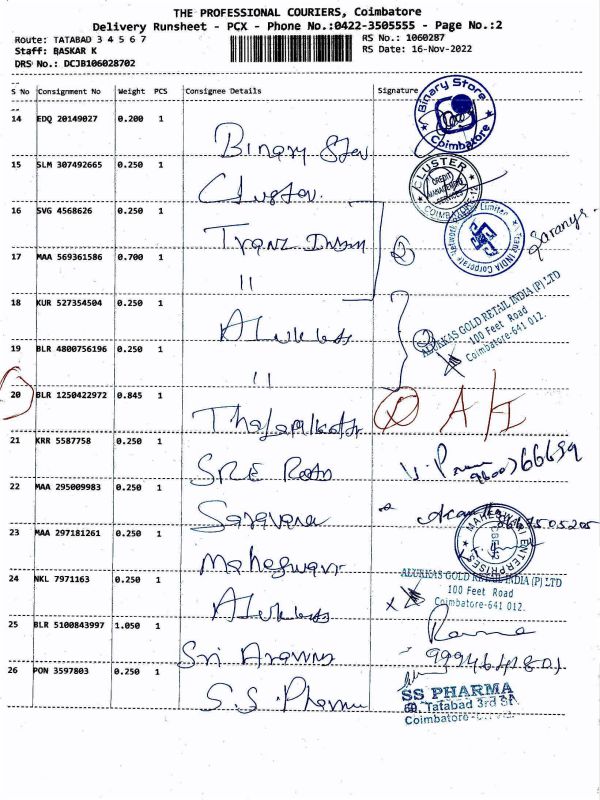 THE PROFESSIONAL COURIERS, Coimbatore
Delivery Runsheet - PCX - Phone No.:0422-3505555 - Page No.:2
Route: TATABAD 3 4 5 6 7
RS No.: 1060287
Staff: BASKAR K
RS Date: 16-Nov-2022
DRS No.: DCJB106028702
S No Consignment No Weight PCS Consignee Details Signature
14 EDQ 20149027 0.200 1
Binary Store Coimbatore
Binary
15 SLM 307492665 0.250 1
CLUSTER CREDIT MANAGEMENT SERVICES COIMBATORE-12
Cluster
16 SVG 4568626 0.250 1
17 MAA 569361586 0.700 1
"
2
18 KUR 527354504 0.250 1
ALUKKAS GOLD RETAIL INDIA (P) LTD
100 Feet Road
Coimbatore-641 012.
19 BLR 4800756196 0.250 1
"
2
20 BLR 1250422972 0.845 1
21 KRR 5587758 0.250 1
SRE
22 MAA 295009983 0.250 1
Saravana
23 MAA 297181261 0.250 1
MAHESWARI ENTERPRISES
Maheswari
24 NKL 7971163 0.250 1
ALUKKAS GOLD RETAIL INDIA (P) LTD
100 Feet Road
Coimbatore-641 012.
25 BLR 5100843997 1.050 1
Sri
Rama
26 PON 3597803 0.250 1
S.S. Pharma
SS PHARMA
60, Tatabad 3rd St.
Coimbatore